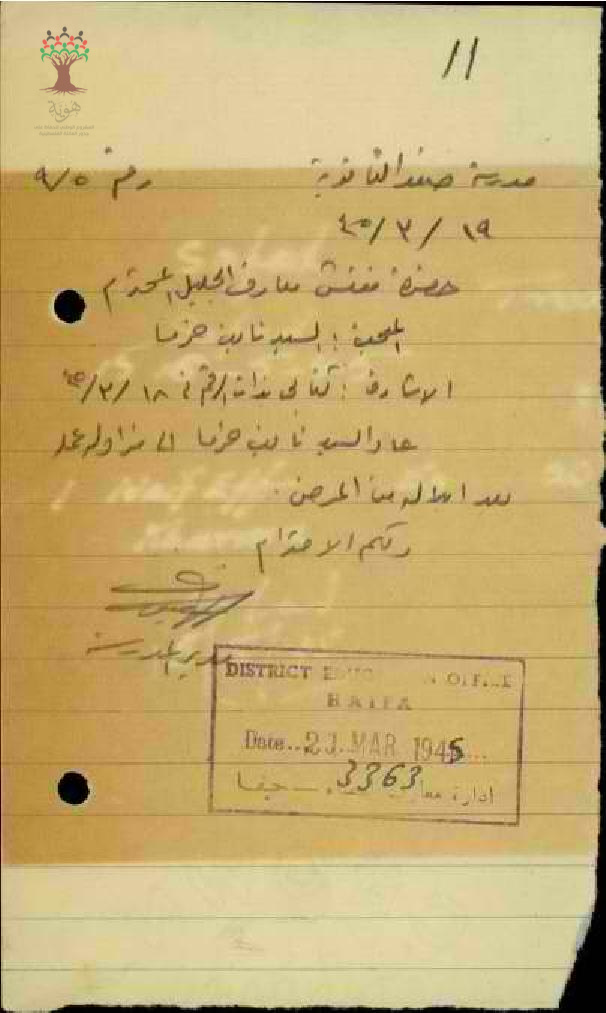 11
هوية
مدرسة صفد الثانوية رقم ٩/٥
١٩ / ٣ / ٤٥
حضرة مفتش معارف الجليل المحترم
المبحث : السيد نايف خرما
الاشارة : كتابي ذات الرقم في ١٨ / ٣ / ٤٥
عاد السيد نايف خرما الى مزاولة عمله
بعد ابلاله من المرض .
ولكم الاحترام
مدير المدرسة
DISTRICT EDUC N OFFICE
HAIFA
Date 23 MAR 1945
3363
ادارة معارف حيفا